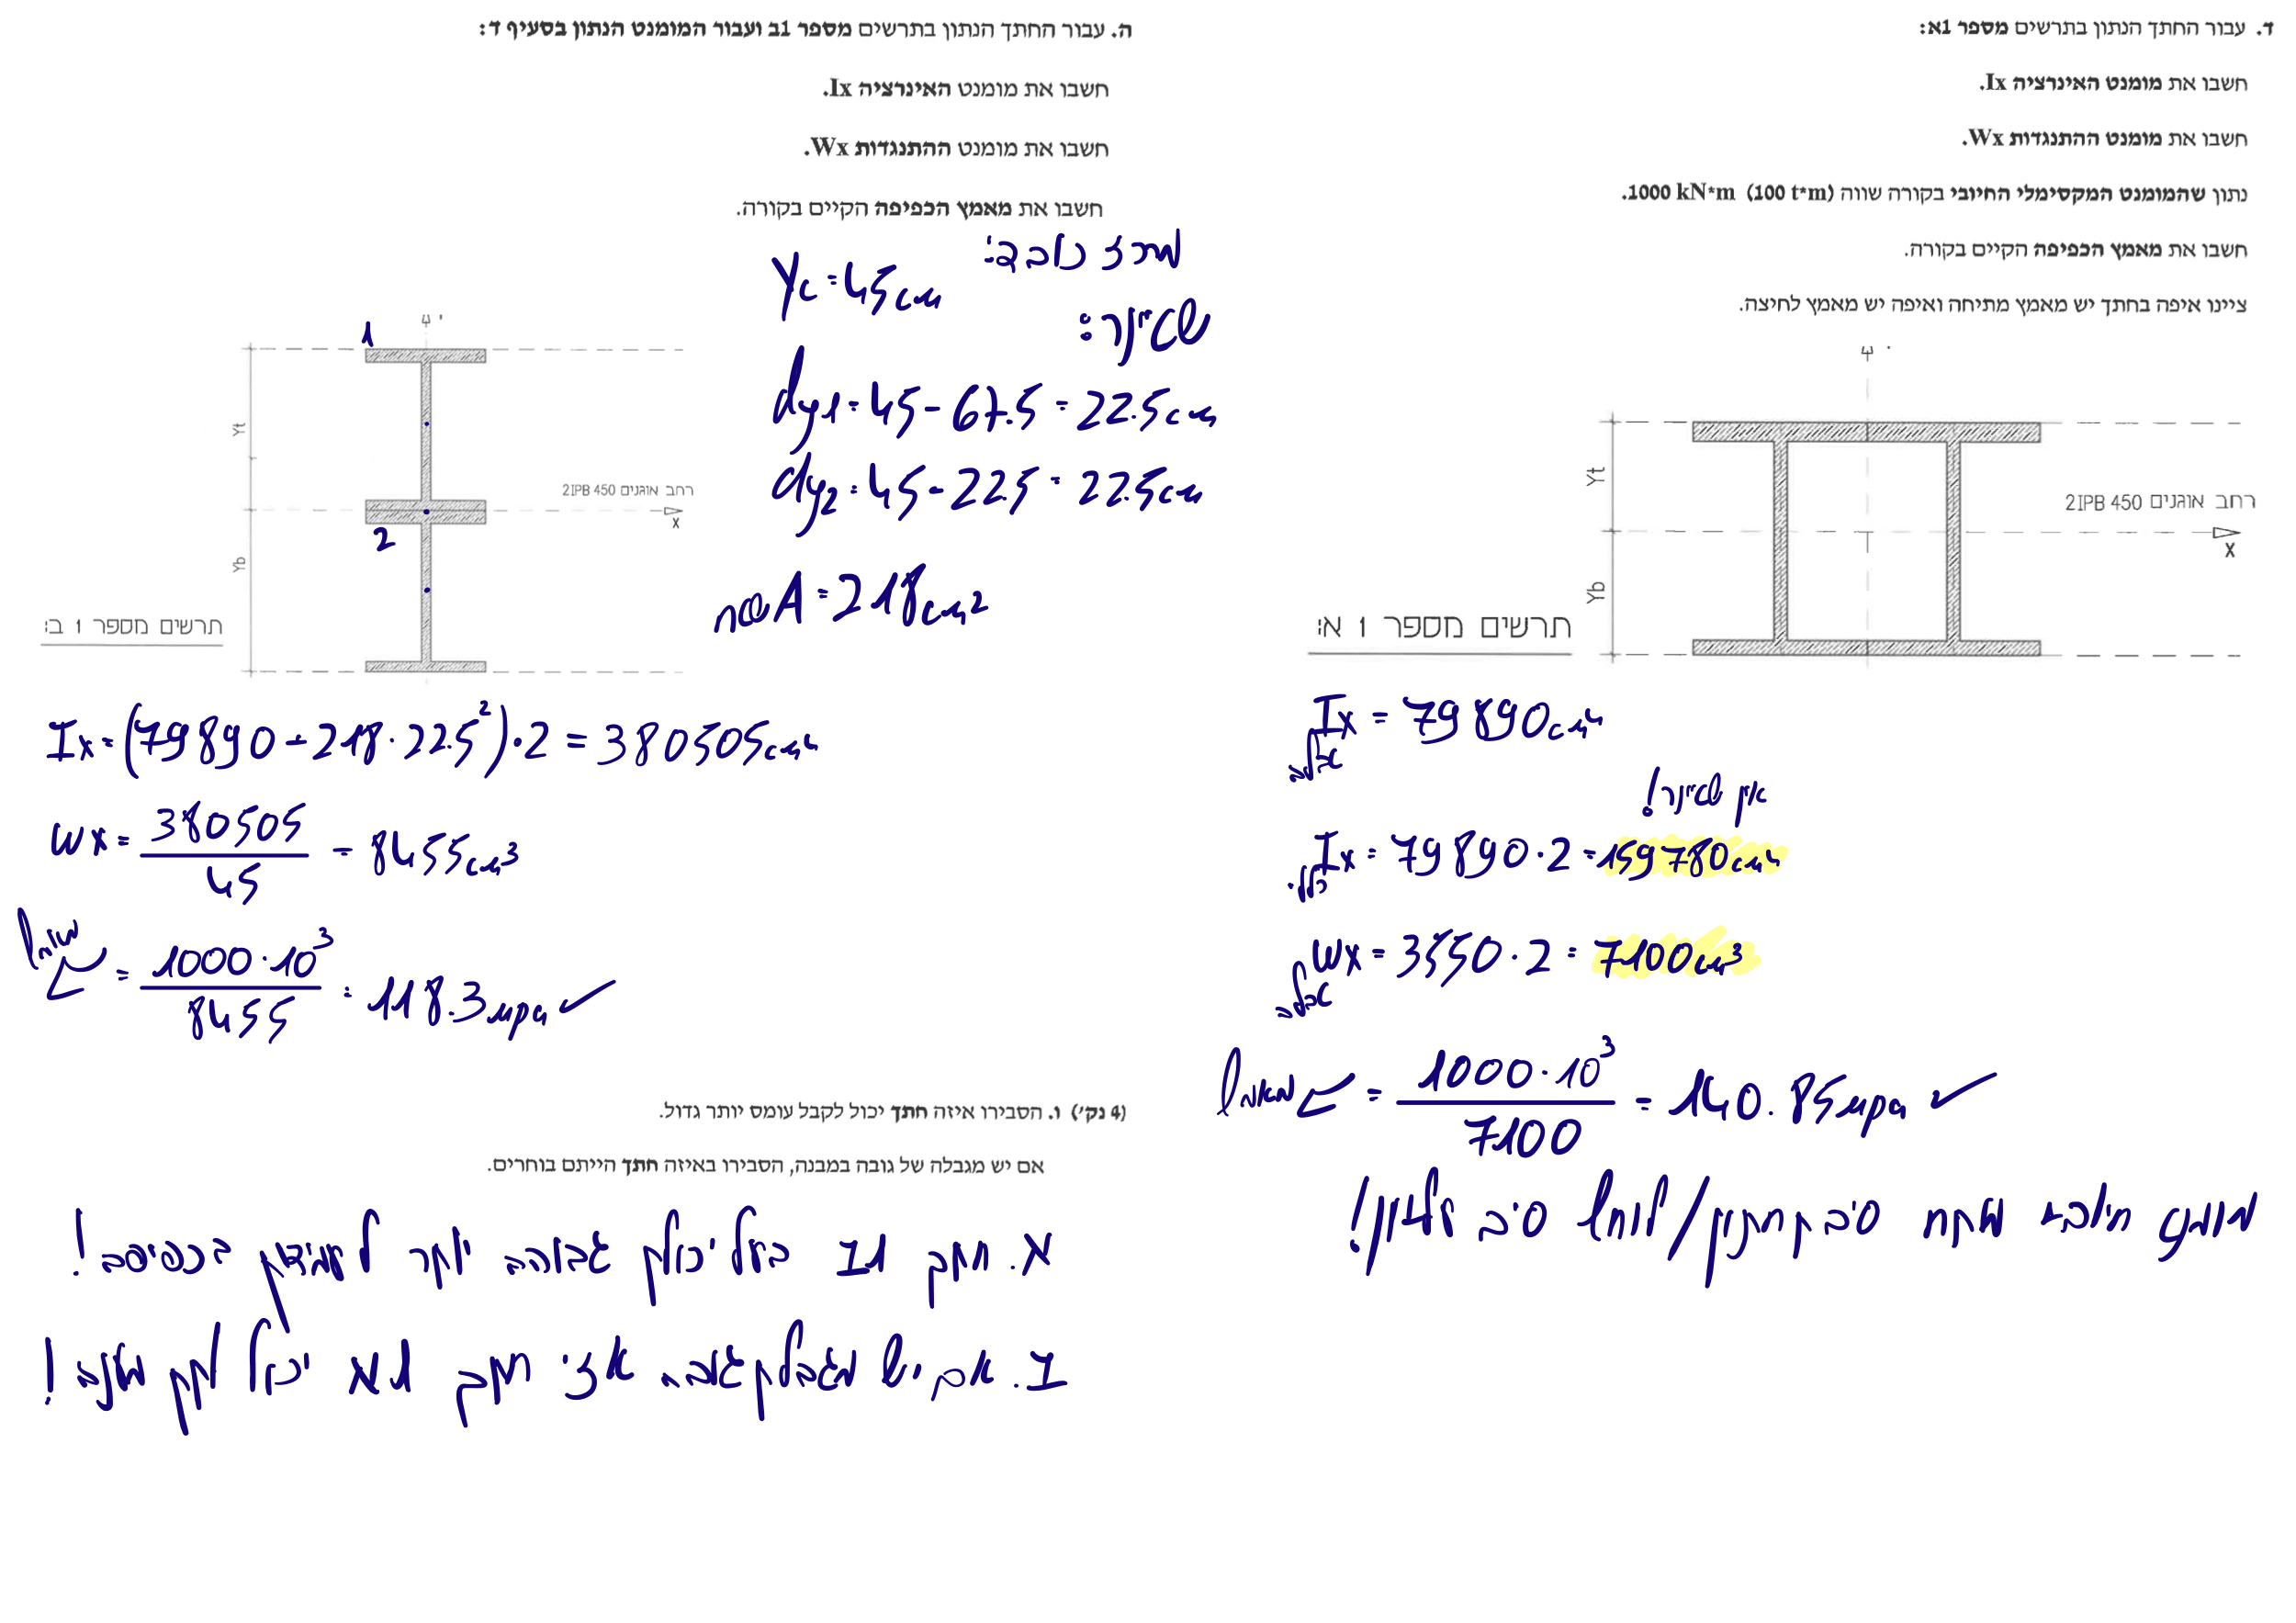 ד. עבור החתך הנתון בתרשים מספר 1א:
חשבו את מומנט האינרציה Ix.
חשבו את מומנט ההתנגדות Wx.
נתון שהמומנט המקסימלי החיובי בקורה שווה 1000 kN*m (100 t*m).
חשבו את מאמץ הכפיפה הקיים בקורה.
ציינו איפה בחתך יש מאמץ מתיחה ואיפה יש מאמץ לחיצה.
y
Yt
Yb
רחב אוגנים 2IPB 450
X
תרשים מספר 1 א:
Ix = 79890cm⁴
טבלה
אין שטיינר!
Ix = 79890·2 = 159780cm⁴
כללי
Wx = 3550·2 = 7100cm³
טבלה
מאמץ = 1000·10³ / 7100 = 140.85mpa ✓
מומנט חיובי מותח סיב תחתון/לוחץ סיב עליון!
ה. עבור החתך הנתון בתרשים מספר 1ב ועבור המומנט הנתון בסעיף ד:
חשבו את מומנט האינרציה Ix.
חשבו את מומנט ההתנגדות Wx.
חשבו את מאמץ הכפיפה הקיים בקורה.
מרכז כובד:
Yc = 45cm
שטיינר:
dy1 = 45 - 67.5 = 22.5cm
dy2 = 45 - 22.5 = 22.5cm
A = 218cm²
y
1
2
Yt
Yb
רחב אוגנים 2IPB 450
X
תרשים מספר 1 ב:
Ix = (79890 + 218·22.5²)·2 = 380505cm⁴
Wx = 380505 / 45 = 8455cm³
= 1000·10³ / 8455 = 118.3mpa ✓
(4 נק') ו. הסבירו איזה חתך יכול לקבל עומס יותר גדול.
אם יש מגבלה של גובה במבנה, הסבירו באיזה חתך הייתם בוחרים.
א. חתך 1ב בעל יכולת גבוהה יותר לעמידות בכפיפה!
ב. אם יש מגבלת גובה אזי חתך 1א יכול לתת מענה!